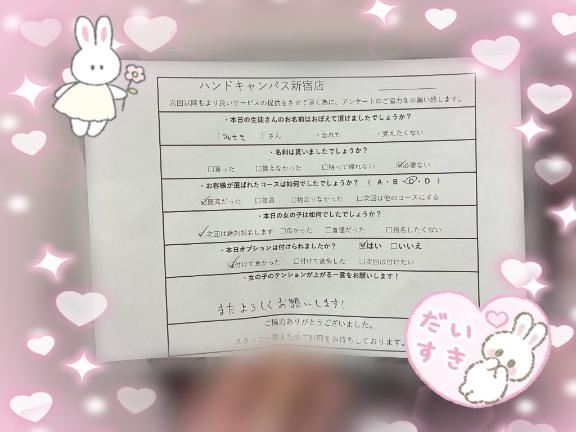 ハンドキャンパス新宿店
次回以降もより良いサービスの提供をさせて頂く為に、アンケートのご協力をお願い致します。
・本日の生徒さんのお名前はおぼえて頂けましたでしょうか?
( みさき )さん ・忘れた ・覚えたくない
・名刺は貰いましたでしょうか?
□貰った □貰えなかった □持って帰れない ☑必要ない
・お客様が選ばれたコースは如何でしたでしょうか? ( A・B・C・D )
☑最高だった □普通 □物足りなかった □次回は他のコースにする
・本日の女の子は如何でしたでしょうか?
☑次回は絶対指名します □良かった □普通だった □指名したくない
・本日オプションは付けられましたか? ☑はい □いいえ
☑付けて良かった □付けて後悔した □次回は付けたい
・女の子のテンションが上がる一言をお願いします!
またよろしくお願いします!
ご協力ありがとうございました。
スタッフ一同またのご利用をお待ちしております。
だい
すき